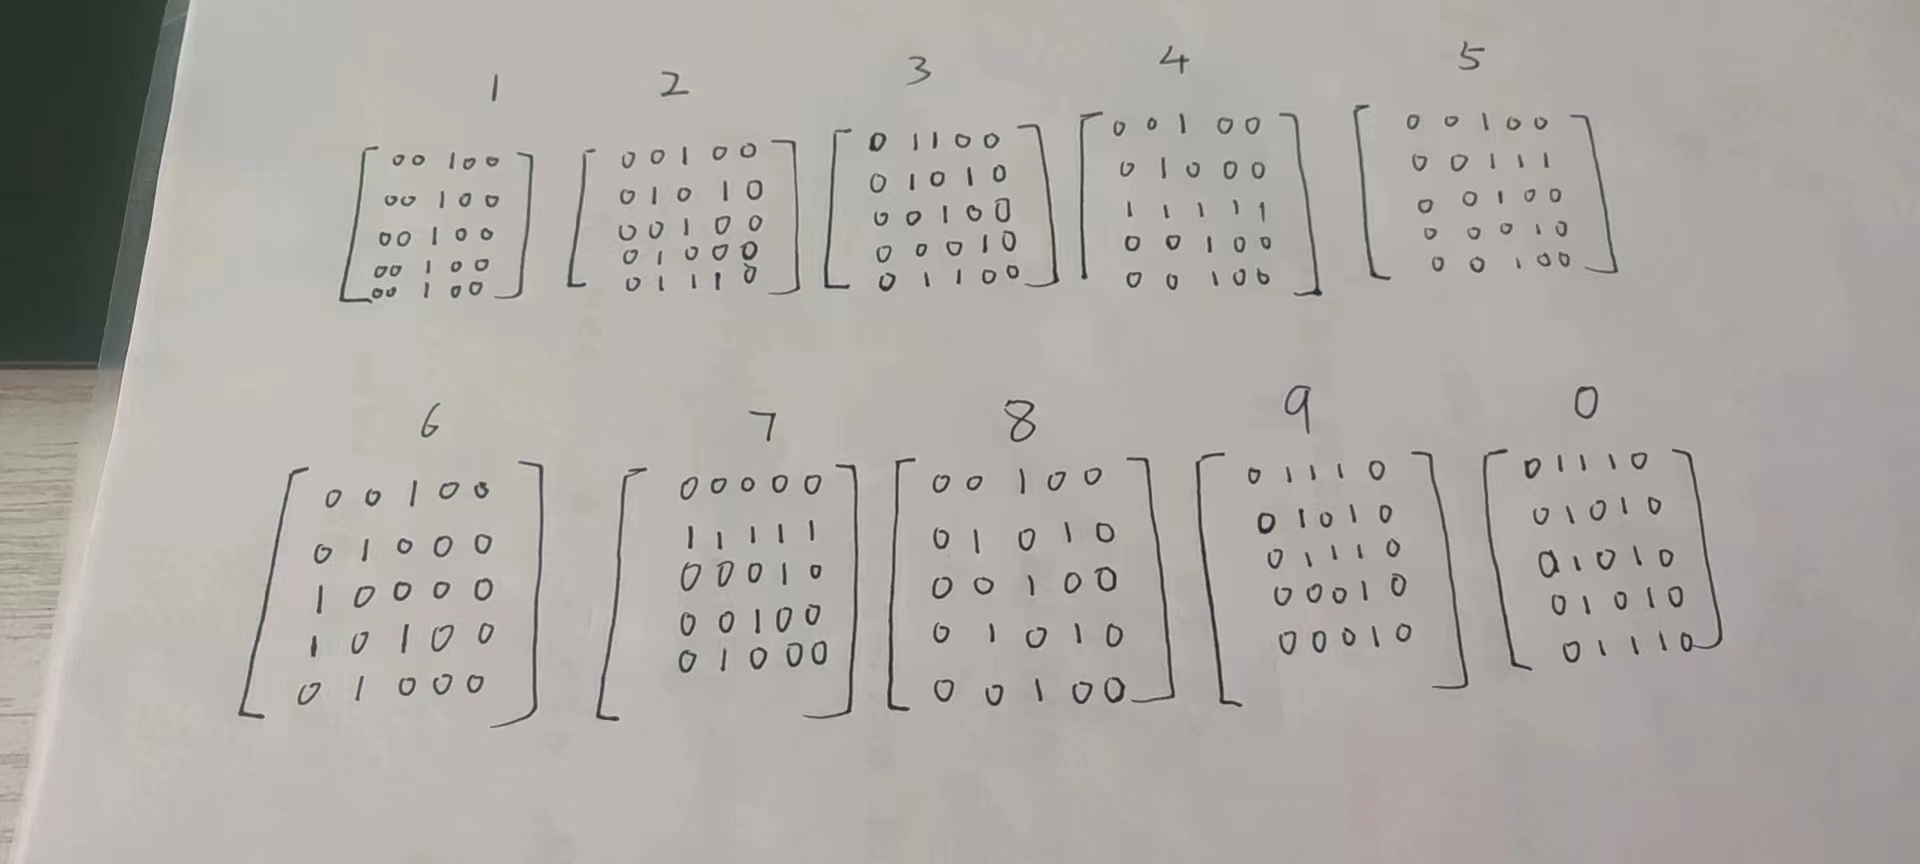 1 2 3 4 5
00100 00100 01100 00100 00100
00100 01010 01010 01000 00111
00100 00100 00100 11111 00100
00100 01000 00010 00100 00010
00100 01110 01100 00100 00100
6 7 8 9 0
00100 00000 00100 01110 01110
01000 11111 01010 01010 01010
10000 00010 00100 01110 01010
10100 00100 01010 00010 01010
01000 01000 00100 00010 01110